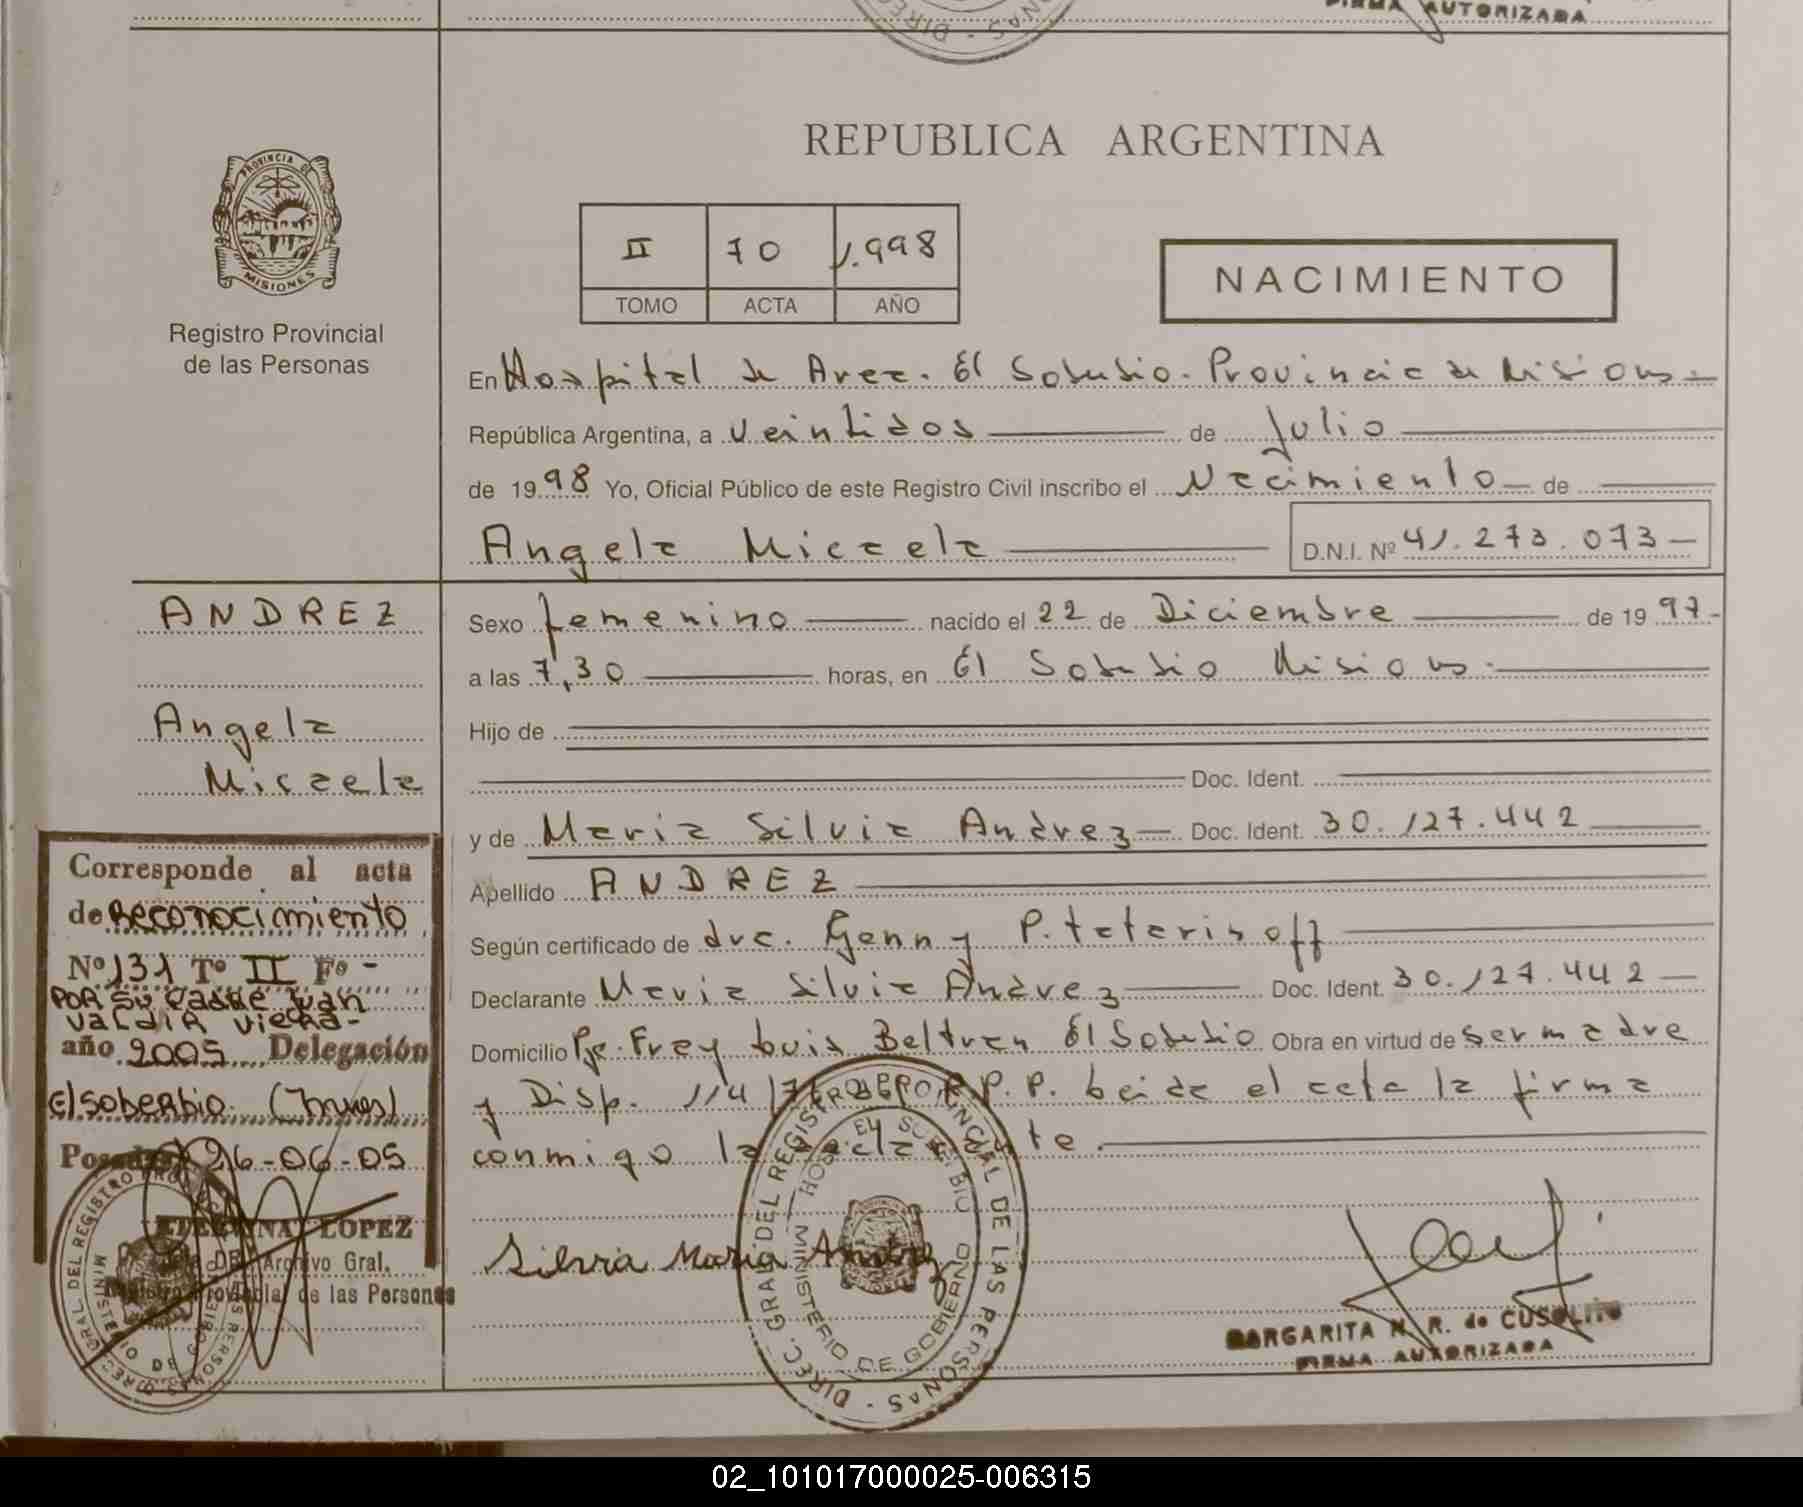 FIRMA AUTORIZADA
PROVINCIA DE
MISIONES
Registro Provincial
de las Personas
REPUBLICA ARGENTINA
II 70 1.998
TOMO ACTA AÑO
NACIMIENTO
En Hospital de Area. El Soberbio. Provincia de Misiones
República Argentina, a veintidos de Julio
de 1998 Yo, Oficial Público de este Registro Civil inscribo el Nacimiento de
Angela Micaela D.N.I. Nº 41.273.073
ANDREZ
Angela
Micaela
Sexo femenino nacido el 22 de Diciembre de 1997
a las 7,30 horas, en El Soberbio Misiones
Hijo de
Doc. Ident.
y de Maria Silvia Andrez Doc. Ident. 30.127.442
Apellido ANDREZ
Según certificado de dra. Genny P.
Declarante Maria Silvia Andrez Doc. Ident. 30.127.442
Domicilio Pje. Fray Luis Beltran El Soberbio Obra en virtud de ser madre
y Disp. 114 R.P.P. Leida el acta la firma
conmigo la declarante.
Silvia Maria Andrez
Corresponde al acta
de Reconocimiento
Nº 131 Tº II Fº -
POR SU PADRE Juan
VALDIR VIERA-
año 2005 Delegación
El soberbio (Mnes)
Posadas 26-06-05
LOPEZ
Archivo Gral.
Registro Provincial de las Personas
DIREC. GRAL. DEL REGISTRO PROVINCIAL DE LAS PERSONAS
MINISTERIO DE GOBIERNO
EL SOBERBIO
MARGARITA N. R. de CUSOLITO
FIRMA AUTORIZADA
02_101017000025-006315